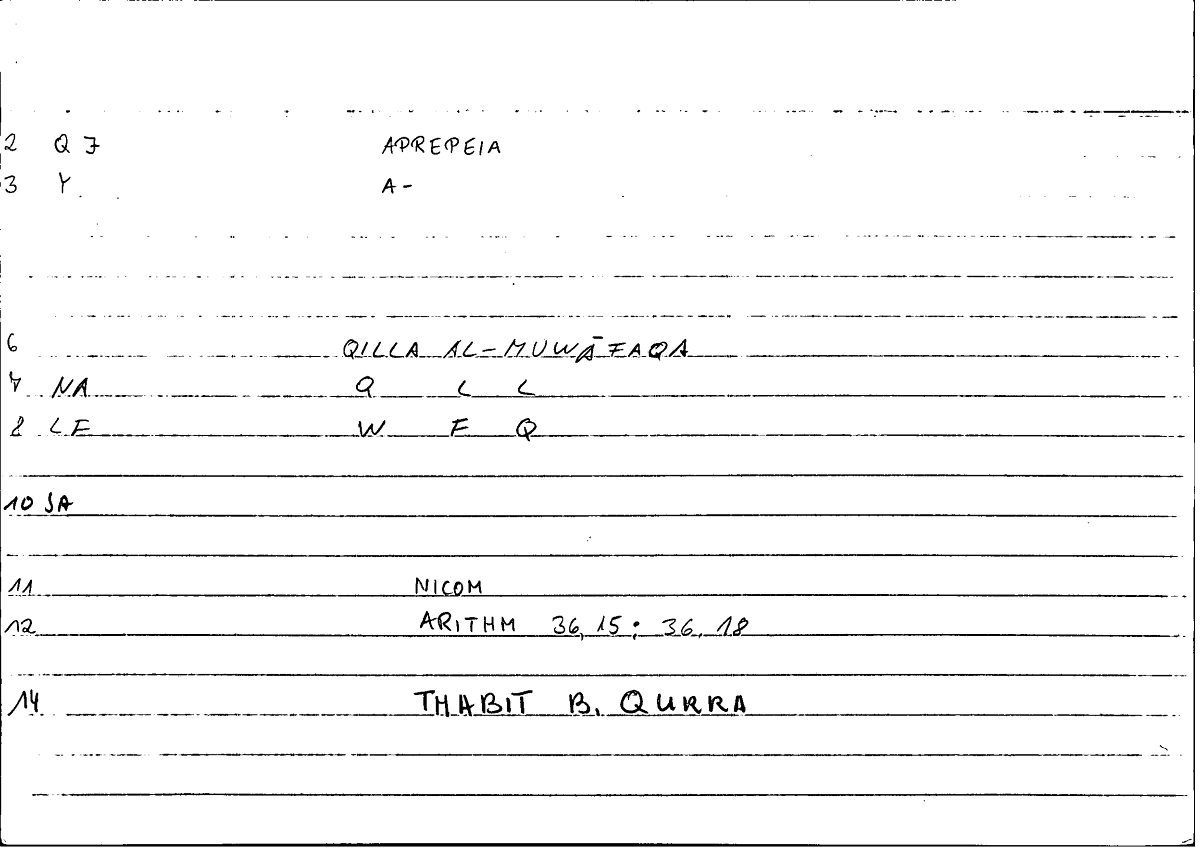 2 Q7 APREPEIA
3 Y. A-
6 QILLA AL-MUWĀFAQA
7 NA Q L L
8 LF W F Q
10 SA
11 NICOM
12 ARITHM 36,15; 36.18
14 THABIT B. QURRA